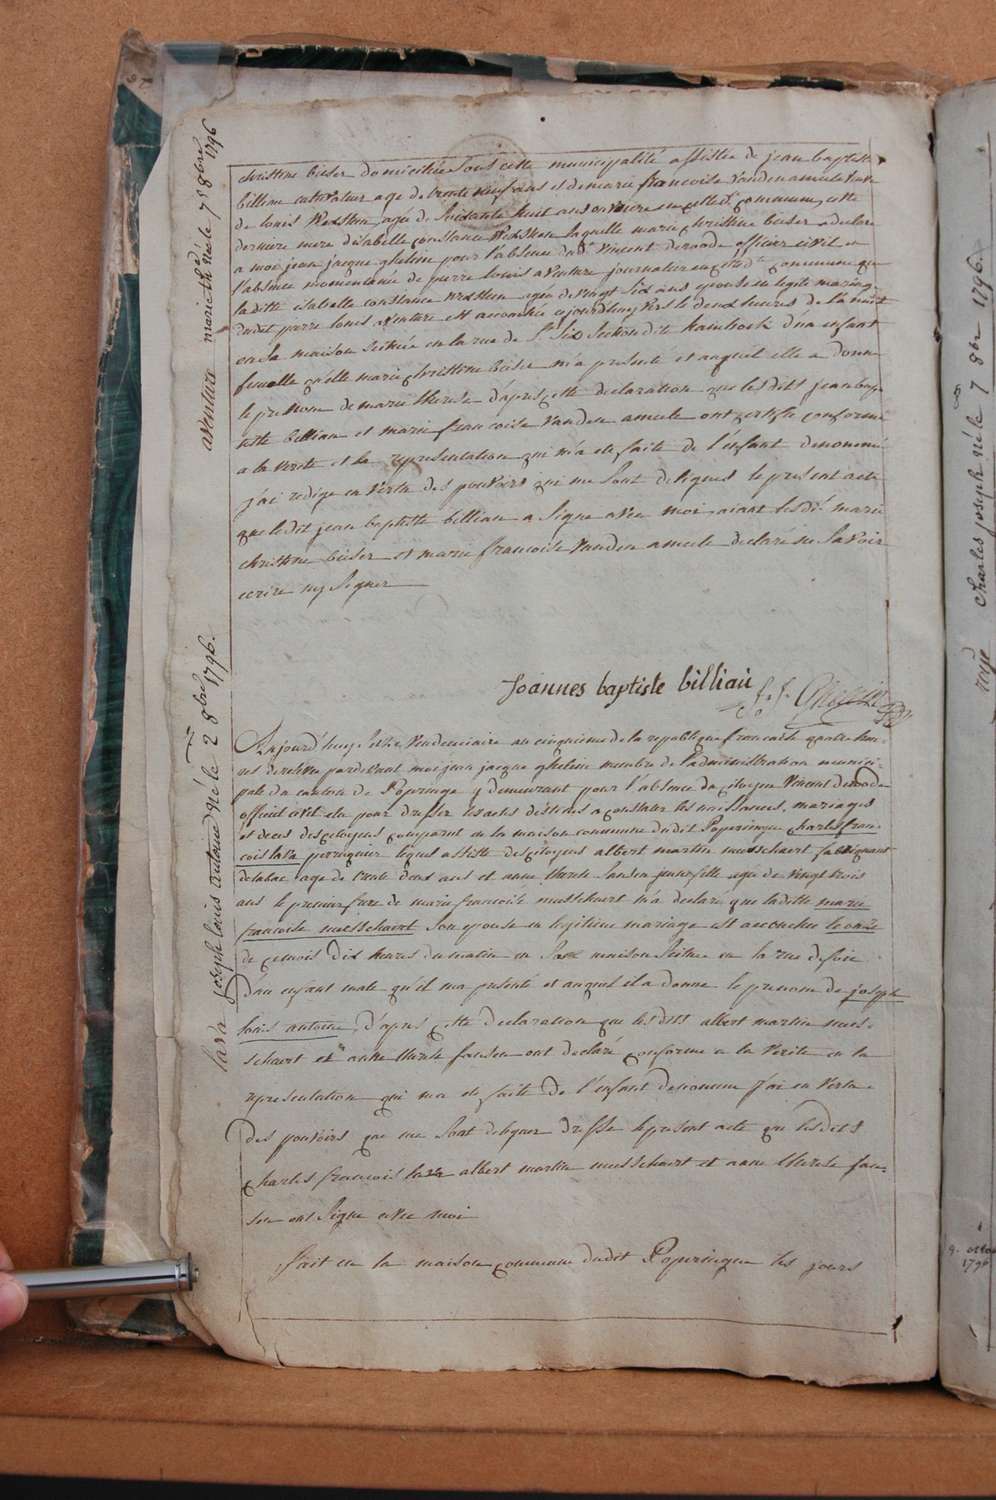 christine beser domiciliée sous cette municipalité assistée de jean baptiste
billiau cultivateur age de trente neuf ans et de marie francoise vanden ameele veuve
de louis Wexsteen agée de soixante huit ans en cette de commune cette
derniere mere d'isabelle constance Wexsteen laquelle marie christine beser a declaré
a moi jean jacque ghelein pour l'absence du dt vincent deroode officier civil en
l'absence momentanée de pierre louis aventure journalier en cette dte commune que
ladite isabelle constance Wexsteen agée de vingt six ans epouse en legitime mariage
dudit pierre louis aventure est accouchée ajourdhuy vers le deux heures de la nuit
en sa maison scituée en la rue de St Six Section dite hambock d'un enfant
femelle qu'elle marie christine beser m'a presenté et auquel elle a donné
le prenom de marie therese d'apres cette declaration que les dits jean bap-
tiste billiau et marie francoise vanden ameele ont certifie conforme
a la verite et la representation qui m'a ete faite de l'enfant denommé
j'ai redigé en vertu des pouvoirs qui me sont delegués le present acte
que ledit jean baptiste billiau a signe avec moi aiant lesdts marie
christine beser et marie francoise vanden ameele declaré ne savoir
ecrire ny signer
Joannes baptiste billiau j. j. Ghelein
Aujourd'huy seize vendemiaire an cinquieme de la republique francaise quatre heu-
res de relevé pardevant moi jean jacque ghelein membre de l'administration munici-
pale du canton de Poperinge y demeurant pour l'absence du citoyen Vincent deroode
officier civil elu pour dresser les actes destinés a constater les naissances, mariages
et deces des citoyens comparut en la maison commune dudit Poperingue charles fran-
cois lava perruquier lequel assisté des citoyens albert martin musschaert fabriquant
de tabac age de trente deux ans et anne therese fanseu jeune fille agée de vingt trois
ans le premier frere de marie francoise musschaert m'a declaré que ladite marie
francoise musschaert son epouse en legitime mariage est accouchée le onze
de ce mois dix heures du matin en sa maison scituée en la rue de foix
d'un enfant male qu'il ma presenté et auquel il a donné le prenom de joseph
louis antoine, d'apres cette declaration que lesdits albert martin muss-
chaert et anne therese fanseu ont declaré conforme a la verite en la
representation qui ma ete faite de l'enfant denommé j'ai en vertu
des pouvoirs que me sont delegués dressé le present acte que lesdits
charles francois lava albert martin musschaert et anne therese fan-
seu ont signe avec moi
fait en la maison commune dudit Poperingue les jours
aventure marie th. née le 7 8bre 1796
lava joseph louis antoine né le 2 8bre 1796.
charles joseph né le 7 8bre 1796.
9. octo
1796